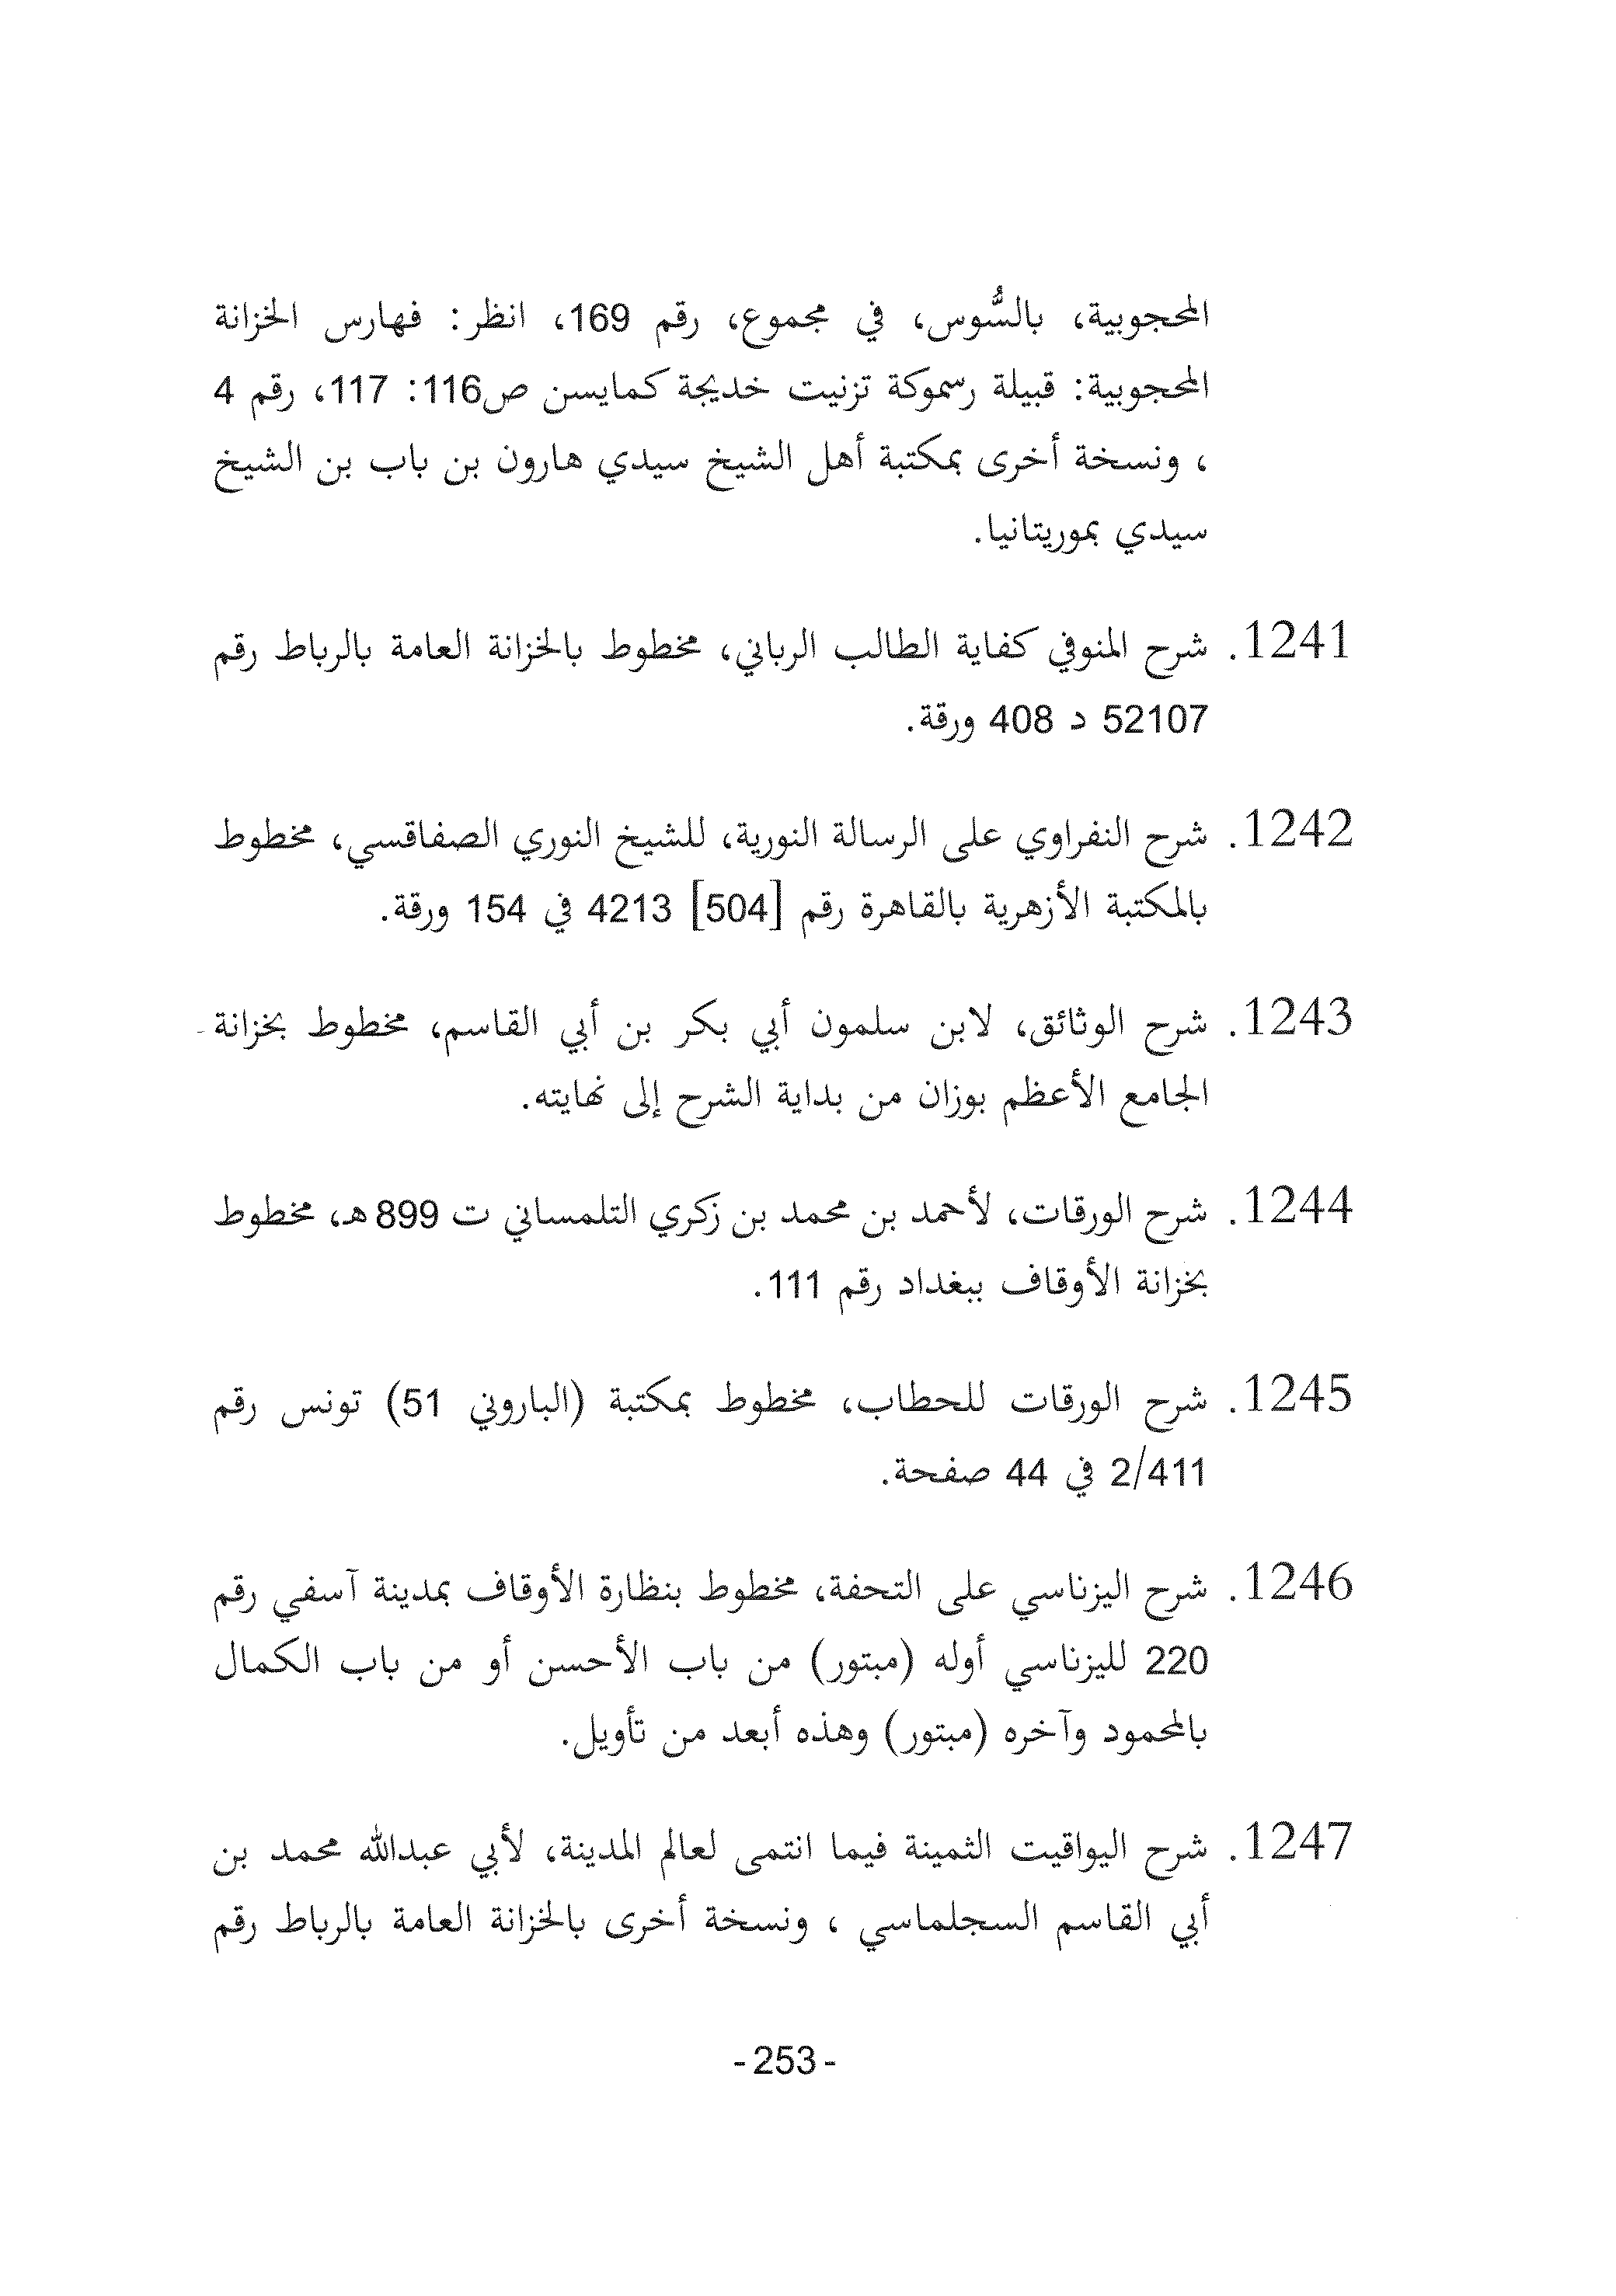 المحجوبية، بالسُّوس، في مجموع، رقم 169، انظر: فهارس الخزانة
المحجوبية: قبيلة رسموكة تزنيت خديجة كمايسن ص116: 117، رقم 4
، ونسخة أخرى بمكتبة أهل الشيخ سيدي هارون بن باب بن الشيخ
سيدي بموريتانيا.
1241. شرح المنوفي كفاية الطالب الرباني، مخطوط بالخزانة العامة بالرباط رقم
52107 د 408 ورقة.
1242. شرح النفراوي على الرسالة النورية، للشيخ النوري الصفاقسي، مخطوط
بالمكتبة الأزهرية بالقاهرة رقم [504] 4213 في 154 ورقة.
1243. شرح الوثائق، لابن سلمون أبي بكر بن أبي القاسم، مخطوط بخزانة
الجامع الأعظم بوزان من بداية الشرح إلى نهايته.
1244. شرح الورقات، لأحمد بن محمد بن زكري التلمساني ت 899هـ، مخطوط
بخزانة الأوقاف ببغداد رقم 111.
1245. شرح الورقات للحطاب، مخطوط بمكتبة (الباروني 51) تونس رقم
2/411 في 44 صفحة.
1246. شرح اليزناسي على التحفة، مخطوط بنظارة الأوقاف بمدينة آسفي رقم
220 لليزناسي أوله (مبتور) من باب الأحسن أو من باب الكمال
بالمحمود وآخره (مبتور) وهذه أبعد من تأويل.
1247. شرح اليواقيت الثمينة فيما انتمى لعالم المدينة، لأبي عبدالله محمد بن
أبي القاسم السجلماسي ، ونسخة أخرى بالخزانة العامة بالرباط رقم
- 253 -